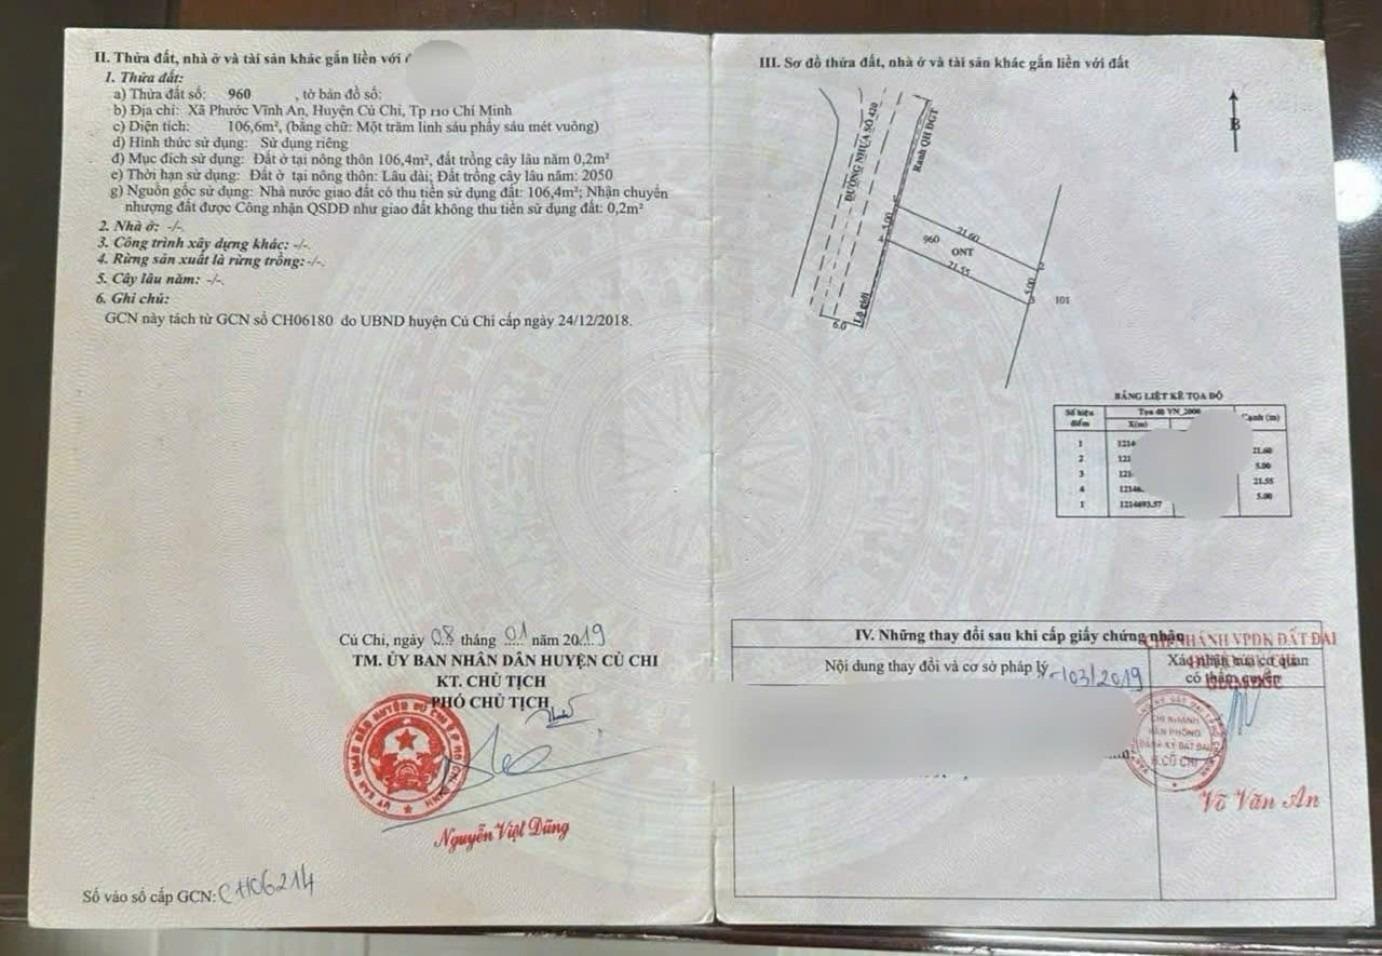 II. Thửa đất, nhà ở và tài sản khác gắn liền với
1. Thửa đất:
a) Thửa đất số: 960 , tờ bản đồ số:
b) Địa chỉ: Xã Phước Vĩnh An, Huyện Củ Chi, Tp Hồ Chí Minh
c) Diện tích: 106,6m², (bằng chữ: Một trăm linh sáu phẩy sáu mét vuông)
d) Hình thức sử dụng: Sử dụng riêng
đ) Mục đích sử dụng: Đất ở tại nông thôn 106,4m², đất trồng cây lâu năm 0,2m²
e) Thời hạn sử dụng: Đất ở tại nông thôn: Lâu dài; Đất trồng cây lâu năm: 2050
g) Nguồn gốc sử dụng: Nhà nước giao đất có thu tiền sử dụng đất: 106,4m²; Nhận chuyển
nhượng đất được Công nhận QSDĐ như giao đất không thu tiền sử dụng đất: 0,2m²
2. Nhà ở: -/-.
3. Công trình xây dựng khác: -/-.
4. Rừng sản xuất là rừng trồng: -/-.
5. Cây lâu năm: -/-.
6. Ghi chú:
GCN này tách từ GCN số CH06180 do UBND huyện Củ Chi cấp ngày 24/12/2018.
Củ Chi, ngày 08 tháng 01 năm 2019
TM. ỦY BAN NHÂN DÂN HUYỆN CỦ CHI
KT. CHỦ TỊCH
PHÓ CHỦ TỊCH
Nguyễn Việt Dũng
Số vào sổ cấp GCN: CH06214
III. Sơ đồ thửa đất, nhà ở và tài sản khác gắn liền với đất
B
ĐƯỜNG NHỰA SỐ 420
Ranh QH ĐGT
5.00
21.60
960
ONT
21.55
5.00
101
Lộ giới
6.0
BẢNG LIỆT KÊ TỌA ĐỘ
Số hiệu điểm Tọa độ VN_2000 Cạnh (m)
X(m)
1 1214
21.60
2 121
5.00
3 121
21.55
4 12146
5.00
1 1214693.57
IV. Những thay đổi sau khi cấp giấy chứng nhận
CHI NHÁNH VPĐK ĐẤT ĐAI
Nội dung thay đổi và cơ sở pháp lý
Xác nhận của cơ quan
có thẩm quyền
GIÁM ĐỐC
/03/2019
CHI NHÁNH
VĂN PHÒNG
ĐĂNG KÝ ĐẤT ĐAI
H.CỦ CHI
Võ Văn An